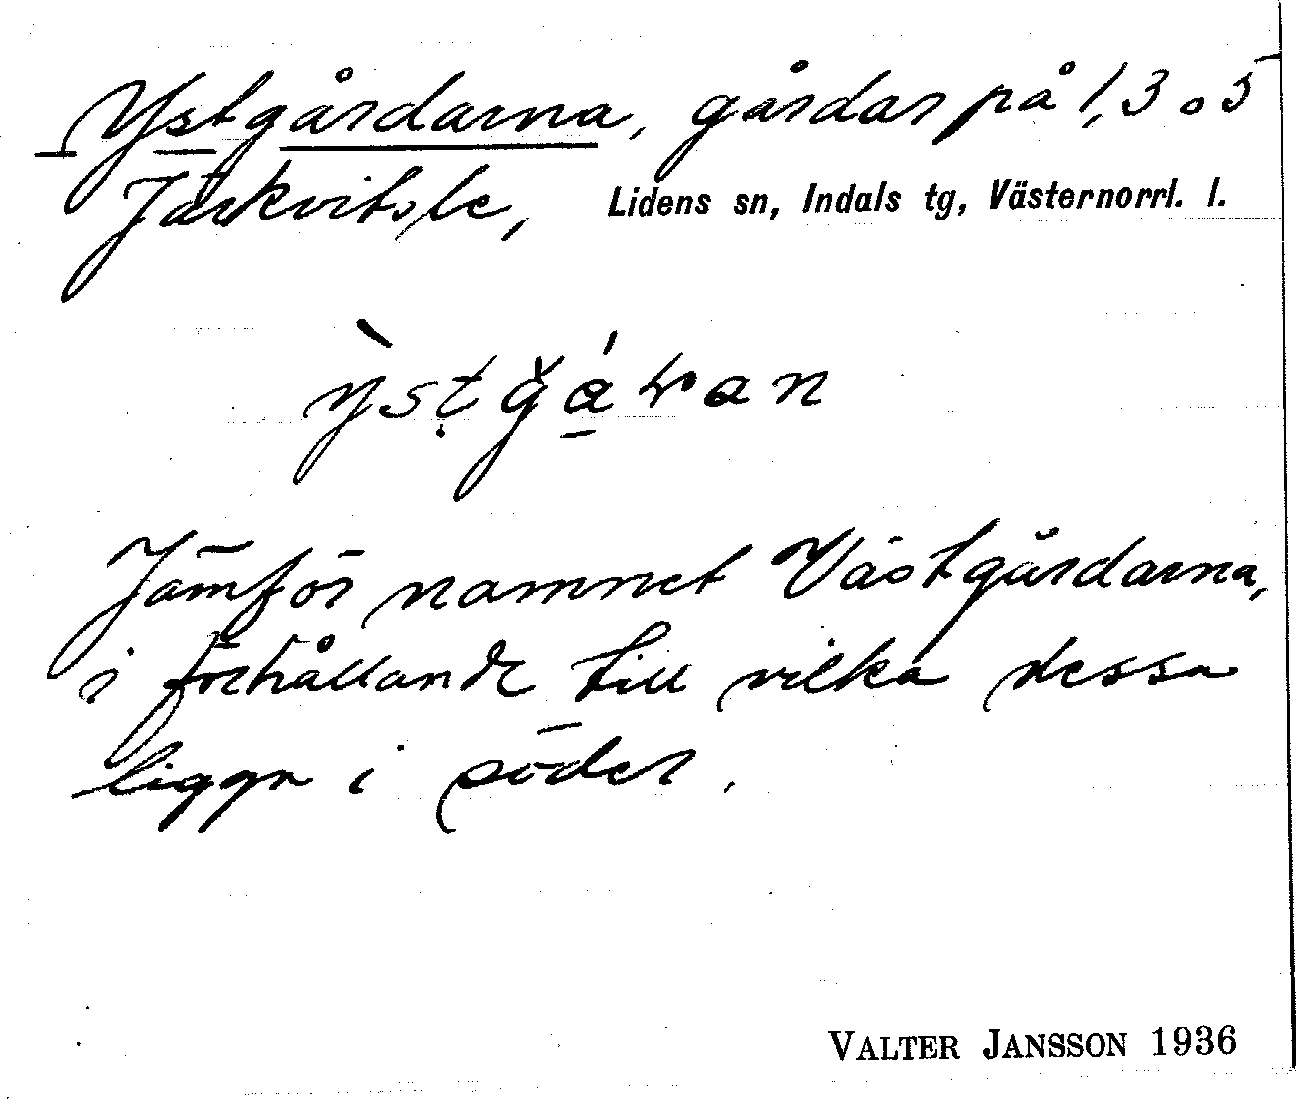 Ystgårdarna, gårdar på 1,3 o 5
Järkvitsle, Lidens sn, Indals tg, Västernorrl. l.
ỳstgáran
Jämför namnet Västgårdarna,
i förhållande till vilka dessa
ligga i söder.
VALTER JANSSON 1936